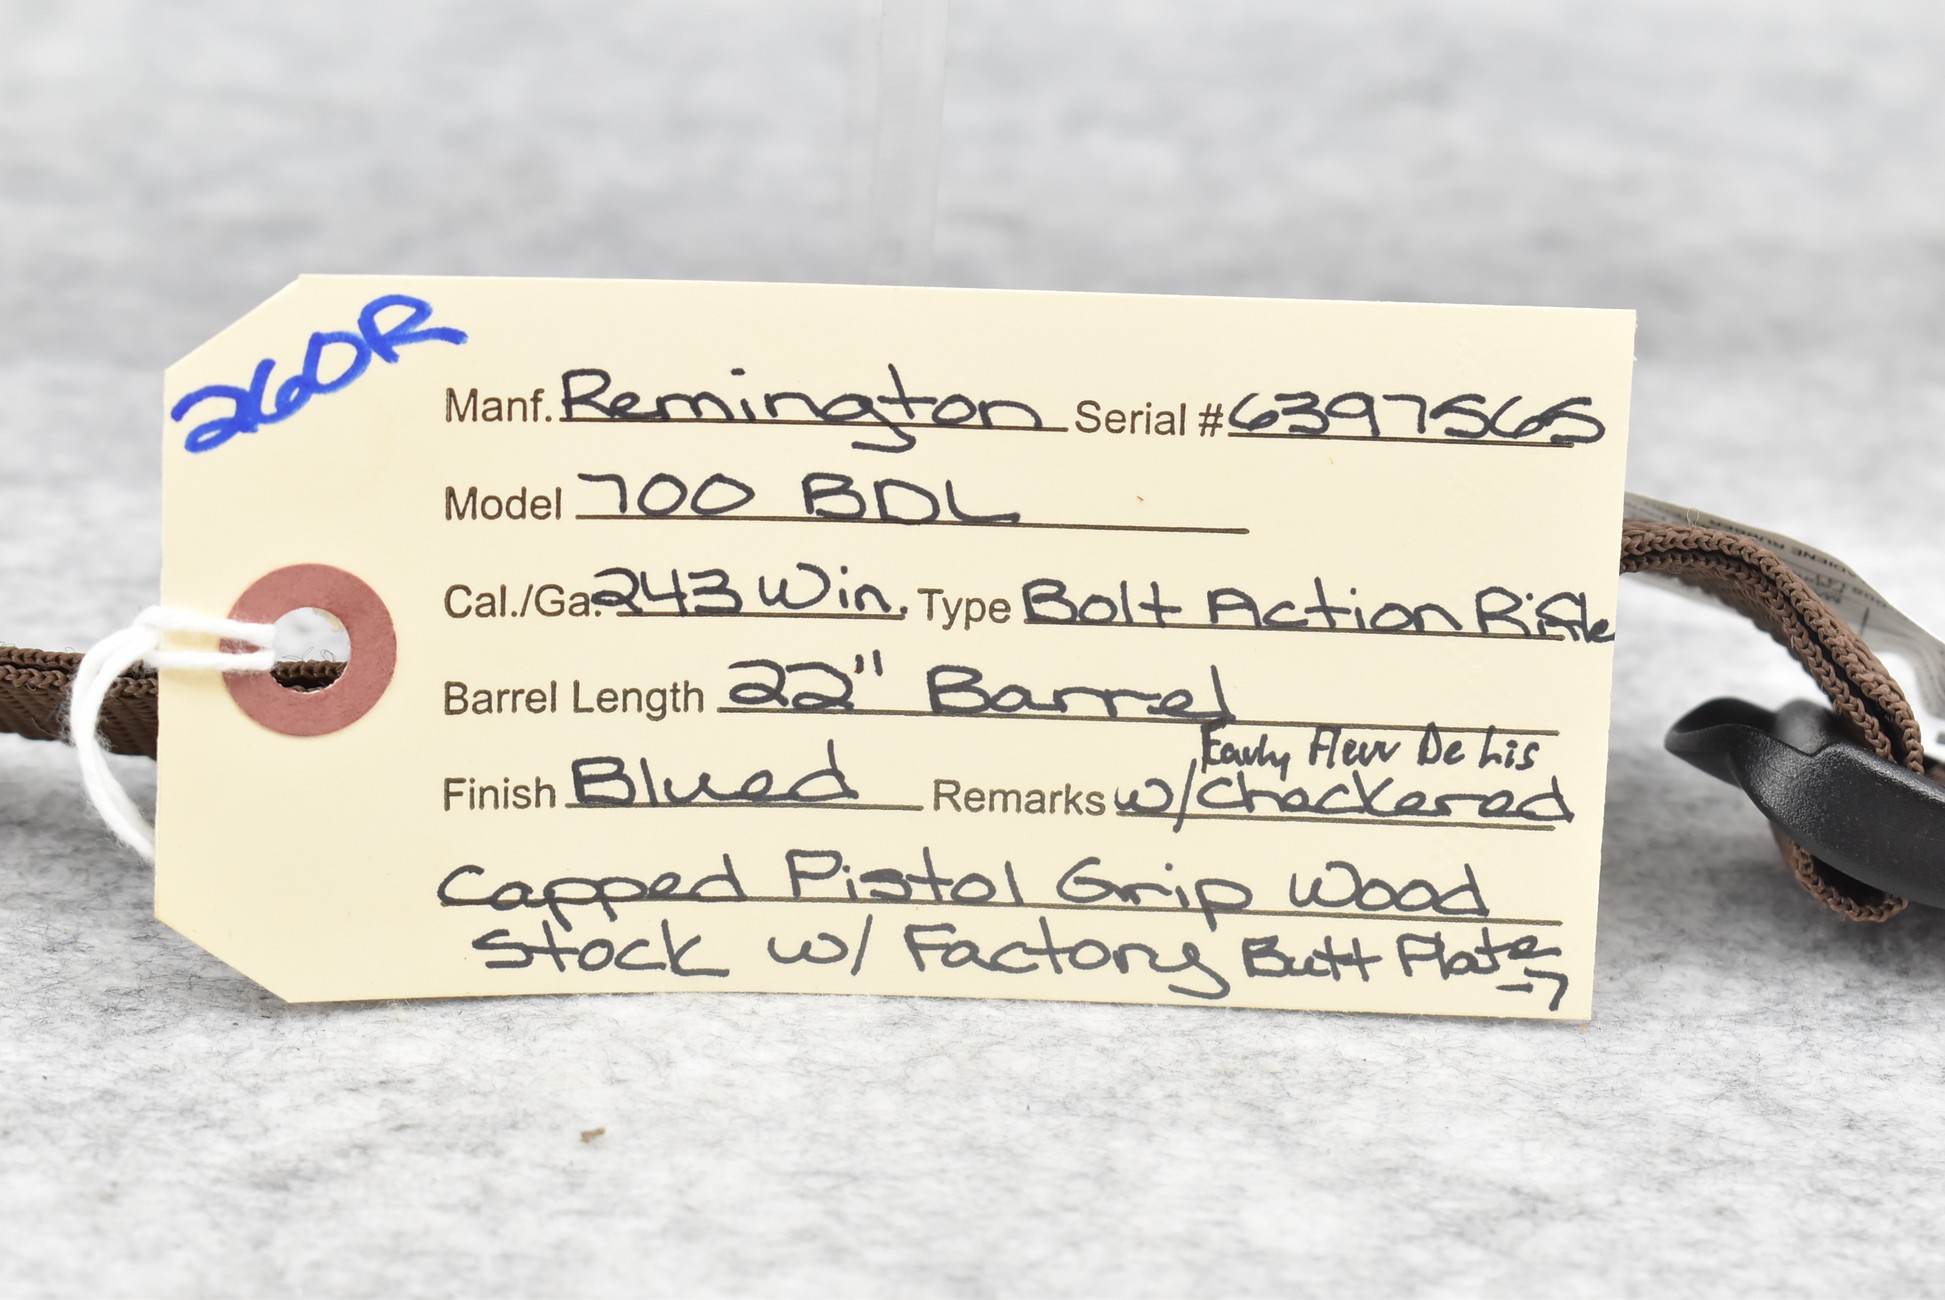 260R
Manf. Remington Serial # 6397565
Model 700 BDL
Cal./Ga. 243 Win. Type Bolt Action Rifle
Barrel Length 22" Barrel
Early Fleur De Lis
Finish Blued Remarks w/ Checkered
Capped Pistol Grip Wood
Stock w/ Factory Butt Plate
→